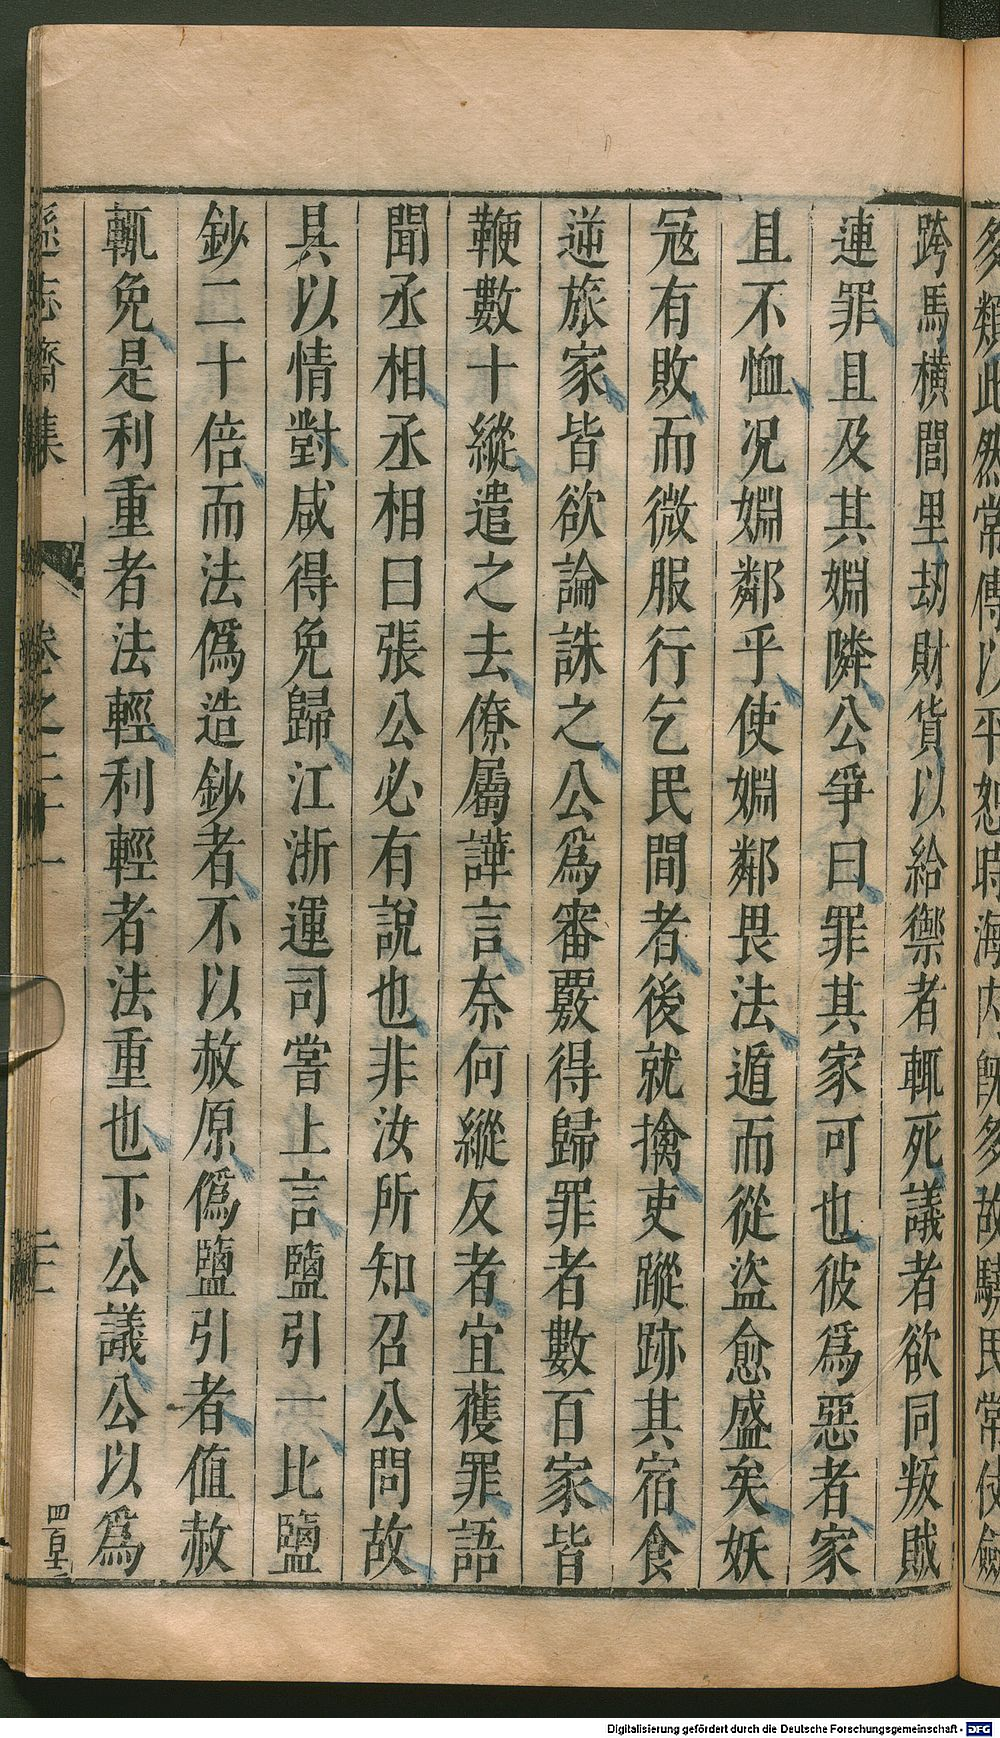 多類此然常傅以平恕時海内既多故驍民常使劍
跨馬橫閭里劫財貨以給禦者輒死議者欲同叛賊
連罪且及其婣隣公爭曰罪其家可也彼爲惡者家
且不恤况婣鄰乎使婣鄰畏法遁而從盜愈盛矣妖
冦有敗而微服行乞民間者後就擒吏蹤跡其宿食
逆旅家皆欲論誅之公爲審覈得歸罪者數百家皆
鞭數十縱遣之去僚屬譁言奈何縱反者宜獲罪語
聞丞相丞相曰張公必有説也非汝所知召公問故
具以情對咸得免歸江浙運司嘗上言鹽引一比鹽
鈔二十倍而法僞造鈔者不以赦原僞鹽引者值赦
輒免是利重者法輕利輕者法重也下公議公以爲
遜志齋集 卷之二十一
Digitalisierung gefördert durch die Deutsche Forschungsgemeinschaft - DFG